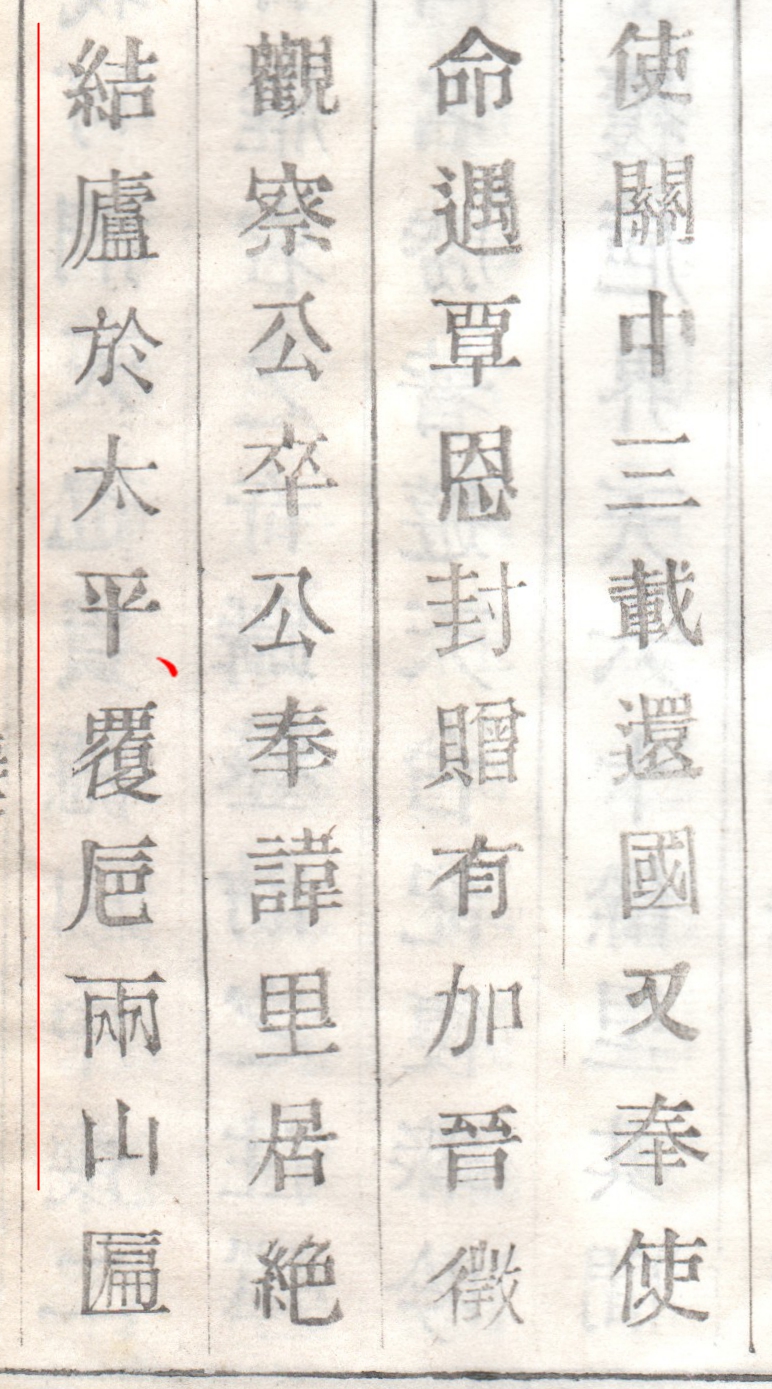 使關中三載還國又奉使
命遇覃恩封贈有加晉徵
觀察公卒公奉諱里居絶
結廬於太平、覆巵兩山匾